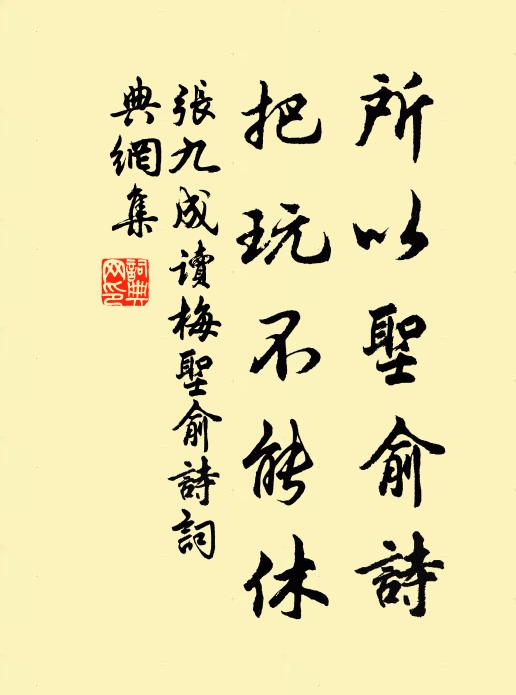 所以聖俞詩
把玩不能休
張九成讀梅聖俞詩詞
典網集
詞典
网印